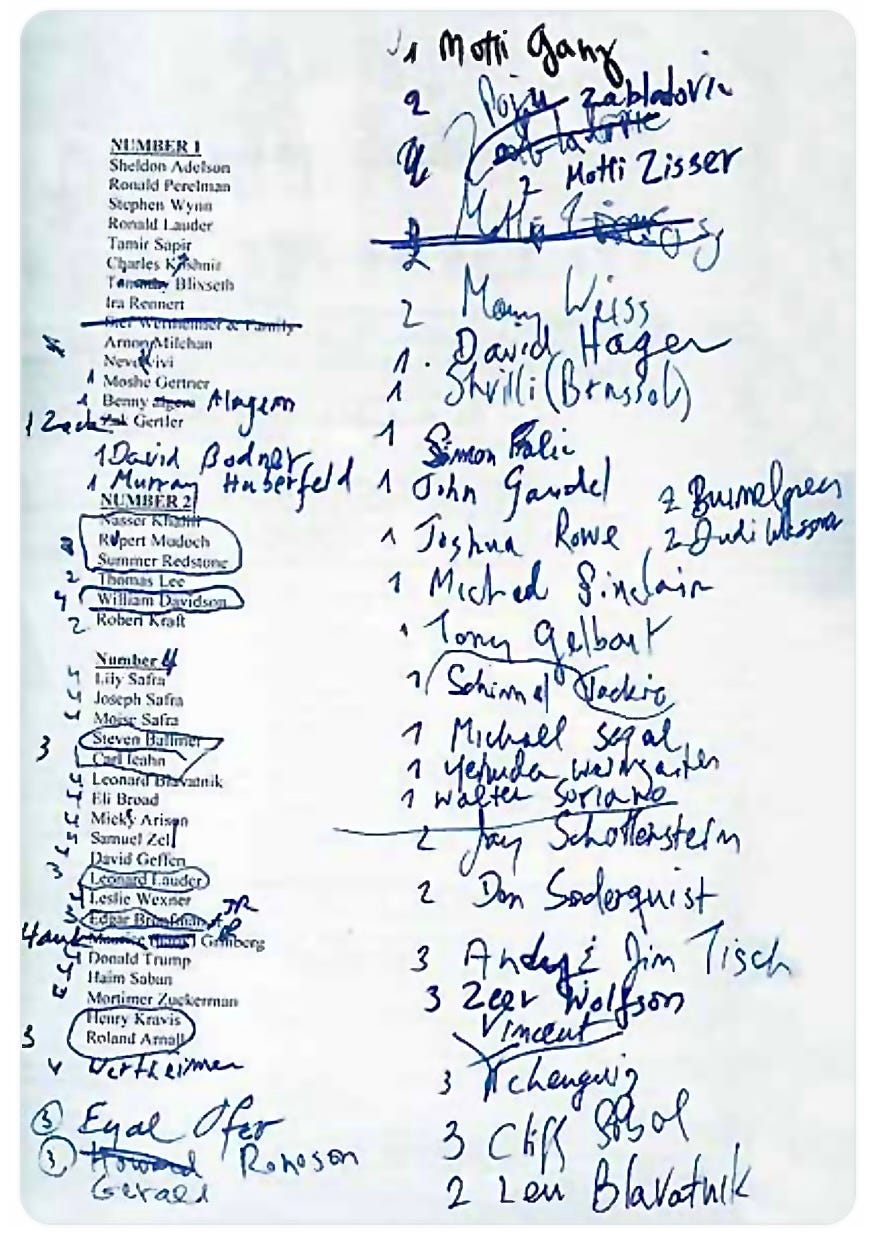 NUMBER 1
Sheldon Adelson
Ronald Perelman
Stephen Wynn
Ronald Lauder
Tamir Sapir
Charles Kushnir
Blixseth
Ira Rennert
Stef Wertheimer & Family
Arnon Milchan
Nevel Vivi
1 Moshe Gertner
1 Benny Alagem
1 Zack Gertler
1 David Bodner
1 Murray Huberfeld
NUMBER 2
Nasser Khalili
Rupert Mudoch
Summer Redstone
2 Thomas Lee
4 William Davidson
2 Robert Kraft
Number 4
4 Lily Safra
4 Joseph Safra
4 Moise Safra
3 Steven Ballmer
Carl Icahn
4 Leonard Blavatnik
4 Eli Broad
4 Micky Arison
4 Samuel Zell
4 David Geffen
3 Leonard Lauder
4 Leslie Wexner
3 Edgar Bronfman JR
4 Grinberg
4 Donald Trump
4 Haim Saban
4 Mortimer Zuckerman
3 Henry Kravis
Roland Arnall
4 Wertheimer
3 Eyal Ofer
3 Howard Ronson
Gerald
1 Motti Ganz
2 Poju Zabladovic
2 Motti Zisser
2 Weiss
1. David Hager
1 (Brussol)
1 Simon Falic
1 John Gandel
2
1 Joshua Rowe
2 Dudi
1 Michael Sinclair
1 Tony Gelbart
1 Schimmel Jackie
1 Michael Segal
1 Yehuda Weingarten
1 Walter Soriano
2 Jay Schottenstein
2 Don Soderquist
3 Andy & Jim Tisch
3 Zeev Wolfson
Vincent
3 Tchenguiz
3 Cliff Sobol
2 Len Blavatnik